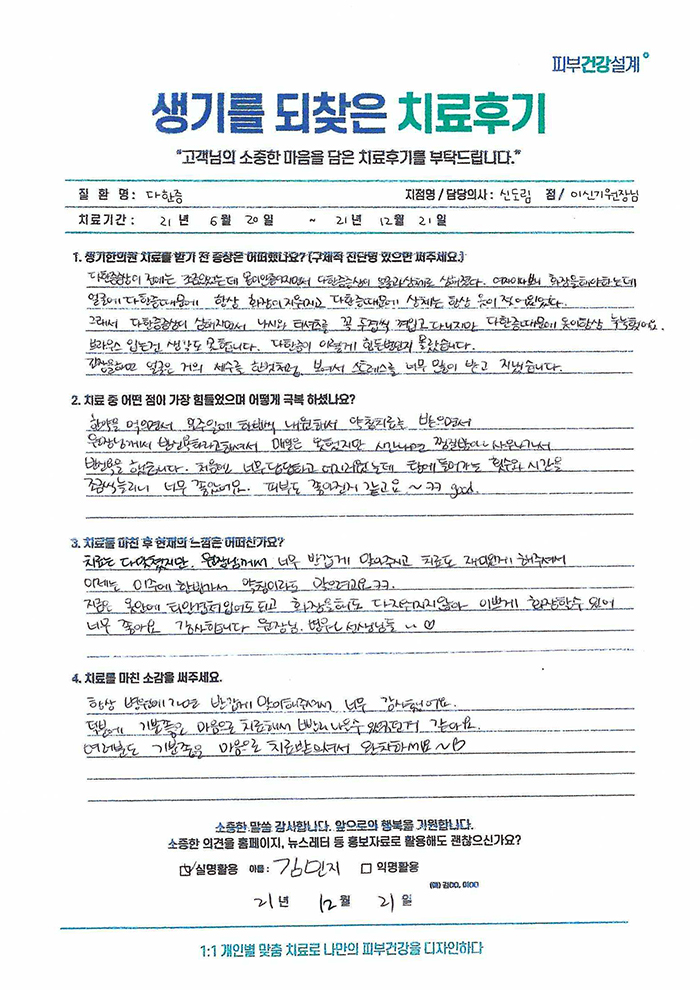 피부건강설계
생기를 되찾은 치료후기
"고객님의 소중한 마음을 담은 치료후기를 부탁드립니다."
질 환 명 : 다한증 지점명 / 담당의사 : 신도림 점 / 이신기 원장님
치료기간 : 21 년 6 월 20 일 ~ 21 년 12 월 21 일
1. 생기한의원 치료를 받기 전 증상은 어떠했나요? (구체적 진단명 있으면 써주세요.)
다한증상이 전에는 조금있었는데 상체로 심해졌다. 화장을해야하는데
얼굴에 다한증때문에 항상 화장이지워지고 다한증때문에 상체는 항상 옷이 젖어있었다.
그래서 다한증증상이 심해지면서 나시와 티셔츠를 꼭 두겹씩 껴입고 다니지만 다한증때문에 옷이항상 축축했어요.
브라우스 입는건 생각도 못합니다. 다한증이 이렇게 힘든병인지 몰랐습니다.
긴장을하면 얼굴은 거의 세수를 한것처럼 보여서 스트레스를 너무 많이 받고 지냈습니다.
2. 치료 중 어떤 점이 가장 힘들었으며 어떻게 극복 하셨나요?
한약을 먹으면서 일주일에 한번씩 내원해서 약침치료는 받으면서
원장님께서 반신욕하라고하셔서 매일은 못했지만 시간나면 찜질방이나 사우나가서
반신욕을 했습니다. 처음엔 너무답답하고 어지러웠는데 탕에 들어가는 횟수와 시간을
조금씩늘리니 너무 좋았어요. 피부도 좋아진거 같고요 ~ ㅋㅋ good.
3. 치료를 마친 후 현재의 느낌은 어떠신가요?
치료는 다막혔지만, 원장님께서 너무 반갑게 맞아주시고 치료도 재미있게 해주셔서
이제는 이주에 한번가서 약침이라도 맞으려고요ㅋㅋ.
지금은 옷안에 티안껴입어도 되고 화장을해도 다지워지지않아 이쁘게 화장할수 있어
너무 좋아요 감사합니다 원장님, 병원 선생님들 ♡
4. 치료를 마친 소감을 써주세요.
항상 병원에 가면 반갑게 맞이해주셔서 너무 감사했어요.
덕분에 기분좋은 마음으로 치료해서 빨리 나을수 있었던거 같아요.
여러분도 기분좋은 마음으로 치료받으셔서 완치하세요 ~ ♡
소중한 말씀 감사합니다. 앞으로의 행복을 기원합니다.
소중한 의견을 홈페이지, 뉴스레터 등 홍보자료로 활용해도 괜찮으신가요?
실명활용 이름 : 김민지 익명활용
(예) 김OO, 이OO
21 년 12 월 21 일
1:1 개인별 맞춤 치료로 나만의 피부건강을 디자인하다